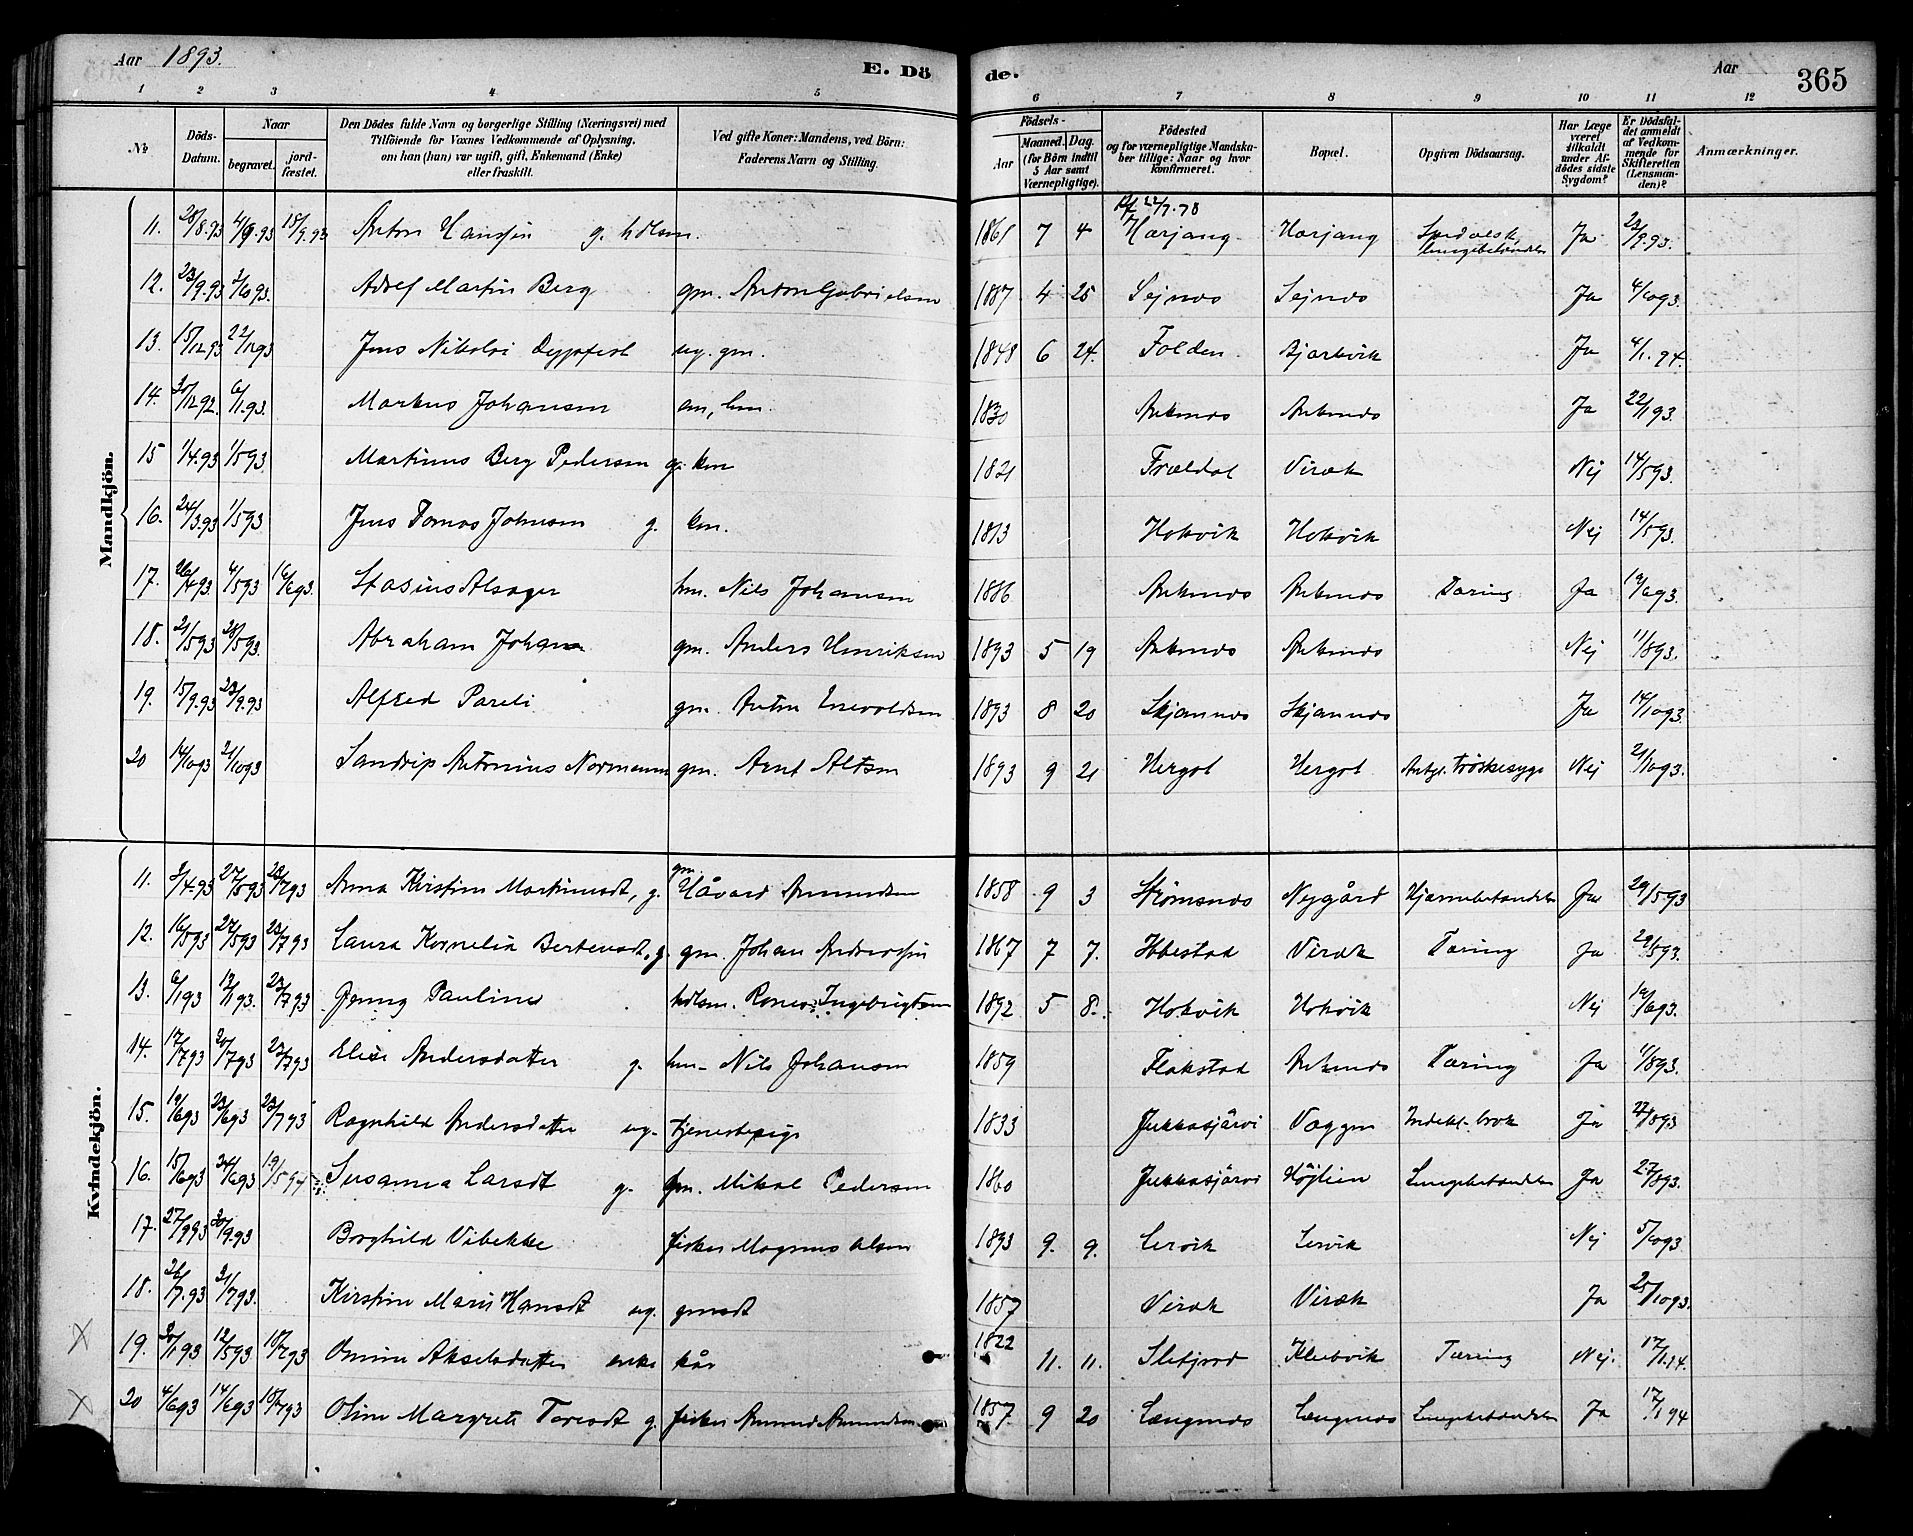 Aar 1893. E. Dö de. Aar 365
1 2 3 4 5 6 7 8 9 10 11 12
No
Döds-Datum.
Naar
begravet.
jord-fæstet.
Den Dödes fulde Navn og borgerlige Stilling (Næringsvei) med
Tilföiende for Voxnes Vedkommende af Oplysning,
om han (hun) var ugift, gift, Enkemand (Enke)
eller fraskilt.
Ved gifte Koner: Mandens, ved Börn:
Faderens Navn og Stilling.
Födsels-
Aar
Maaned. Dag.
(for Börn indtil
5 Aar samt
Værnepligtige).
Födested
og for værnepligtige Mandska-
ber tillige: Naar og hvor
konfirmeret.
Bopæl.
Opgiven Dödsaarsag.
Har Læge
været
tilkaldt
under Af-
dödes sidste
Sygdom?
Er Dödsfal-
det anmeldt
af Vedkom-
mende for
Skifteretten
(Lensman-
den)?
Anmærkninger.
Mandkjön.
11. 28/8.93 4/9.93 18/9.93 Anton Hansen g. hdlsm. 1861 7 4 Harjang Harjang Ja 23/9.93.
12. 23/9.93 1/10 93. Adolf Martin Berg gm. Anton Gabrielsen 1887 4 25 Sejnes Sejnes Ja 4/10 93.
13. 15/12.93 22/12 93 Jens Nikolai Dypfest ug. gm. 1848 6 24. Folden Bjerkvik Ja 4/1.94.
14. 30/12 92. 6/1.93. Markus Johansen em, hm. 1830 Ankenes Ankenes Ja 22/1 93.
15 1/4.93 1/5 93. Martinus Berg Pedersen g. km 1821 Trældal Viræk Nej 14/5 93.
16. 24/3.93 1/5 93 Jens Tomas Johnsen g. km. 1813 Hokvik Hokvik Nej 14/5 93.
17. 26/4 93. 4/5 93 16/6 93. Stasius Alsager hm. Nils Johansen 1886 Ankenes Ankenes Tæring Ja 19/6 93.
18. 21/5 93 28/5 93. Abraham Johan gm. Anders Henriksen 1893 5 19 Ankenes Ankenes Nej 11/8 93.
19. 15/9.93 23/9.93 Alfred Pareli gm. Anton Enevoldsen 1893 8 20 Skjomnes Skjomnes Ja 14/10 93.
20 14/10 93 21/10 93 Sandrip Antonius Normann gm. Arnt Altsen 1893 9 21 Hergot Hergot Antgl. trøskesyge Nej 21/10 93.
Kvindekjön.
11. 3/4.93 27/5 93 23/7 93 Anna Kirstine Martinusdt, g. gm. Håvard Amundsen 1858 9 3 Strømsnes Nygård Hjernebetændelse Ja 29/5 93
12. 16/5 93 27/5 93 23/7 93 Laura Kornelia Bertensdt, g. gm. Johan Andreassen 1867 7 7. Ibbestad Viræk Tæring Ja 29/5 93.
13. 6/1 93 12/1 93. 23/7 93 Jenny Pauline hdlsm. Ingebrigtsen 1892 5 8. Hokvik Hokvik Nej 19/6 93.
14. 17/7 93 20/7 93 23/7 93 Elise Andersdatter g. hm. Nils Johansen 1859 Flakstad Ankenes Tæring Ja 11/8 93.
15. 19/6 93 23/6 93 23/7 93 Ragnhild Andersdatter ug. tjenestepige 1833 Jukkasjärvi Vaggen Indekl. brok Ja 27/8 93
16. 15/6 93 24/6 93 19/5 94 Susanna Larsdt g. gm. Mikal Pedersen 1860 Jukkasjärvi Højlien Lungebetændelse Ja 27/8 93.
17. 27/9 93 30/9.93 Borghild Vibekke fisker Magnus Olsen 1893 9. 9. Lervik Lervik Nej 5/10 93.
18. 26/7.93 31/7 93. Kirstine Marie Hansdt ug. gmsdt 1857 Viræk Viræk Ja 25/10 93.
19. 30/1 93 12/5 93 18/7 93 Akselsdatter enke kår 1822 11. 11. Slefjord Klubvik Tæring Nej. 17/1.94.
20 4/6 93 14/6 93 18/7 93 Oline Margrete Toresdt g. fisker Amund Amundsen 1857 9 20 Længenes Længenes Lungebetændelse Ja 17/1 94